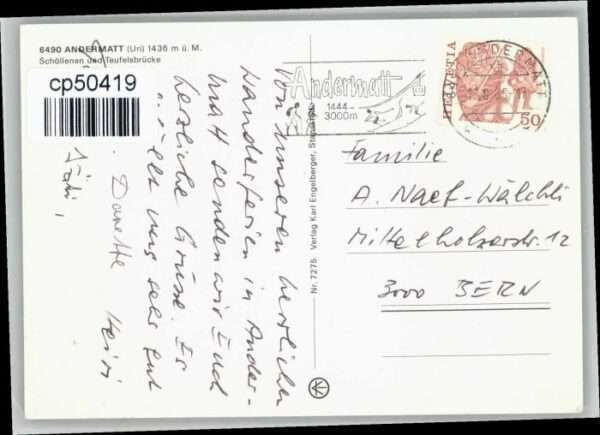 6490 ANDERMATT (Uri) 1436 m ü. M.
Schöllenen und Teufelsbrücke
cp50419
Von unseren herrlichen
Wanderferien in Ander-
matt senden wir Euch
herzliche Grüsse. Es
gefällt uns sehr gut
Danette Heiri
Nr. 7275 Verlag Karl Engelberger,
Andermatt
1444-
3000m
ANDERMATT
HELVETIA
50
Familie
A. Naef-Wälchli
Mittelholzerstr. 12
3000 BERN